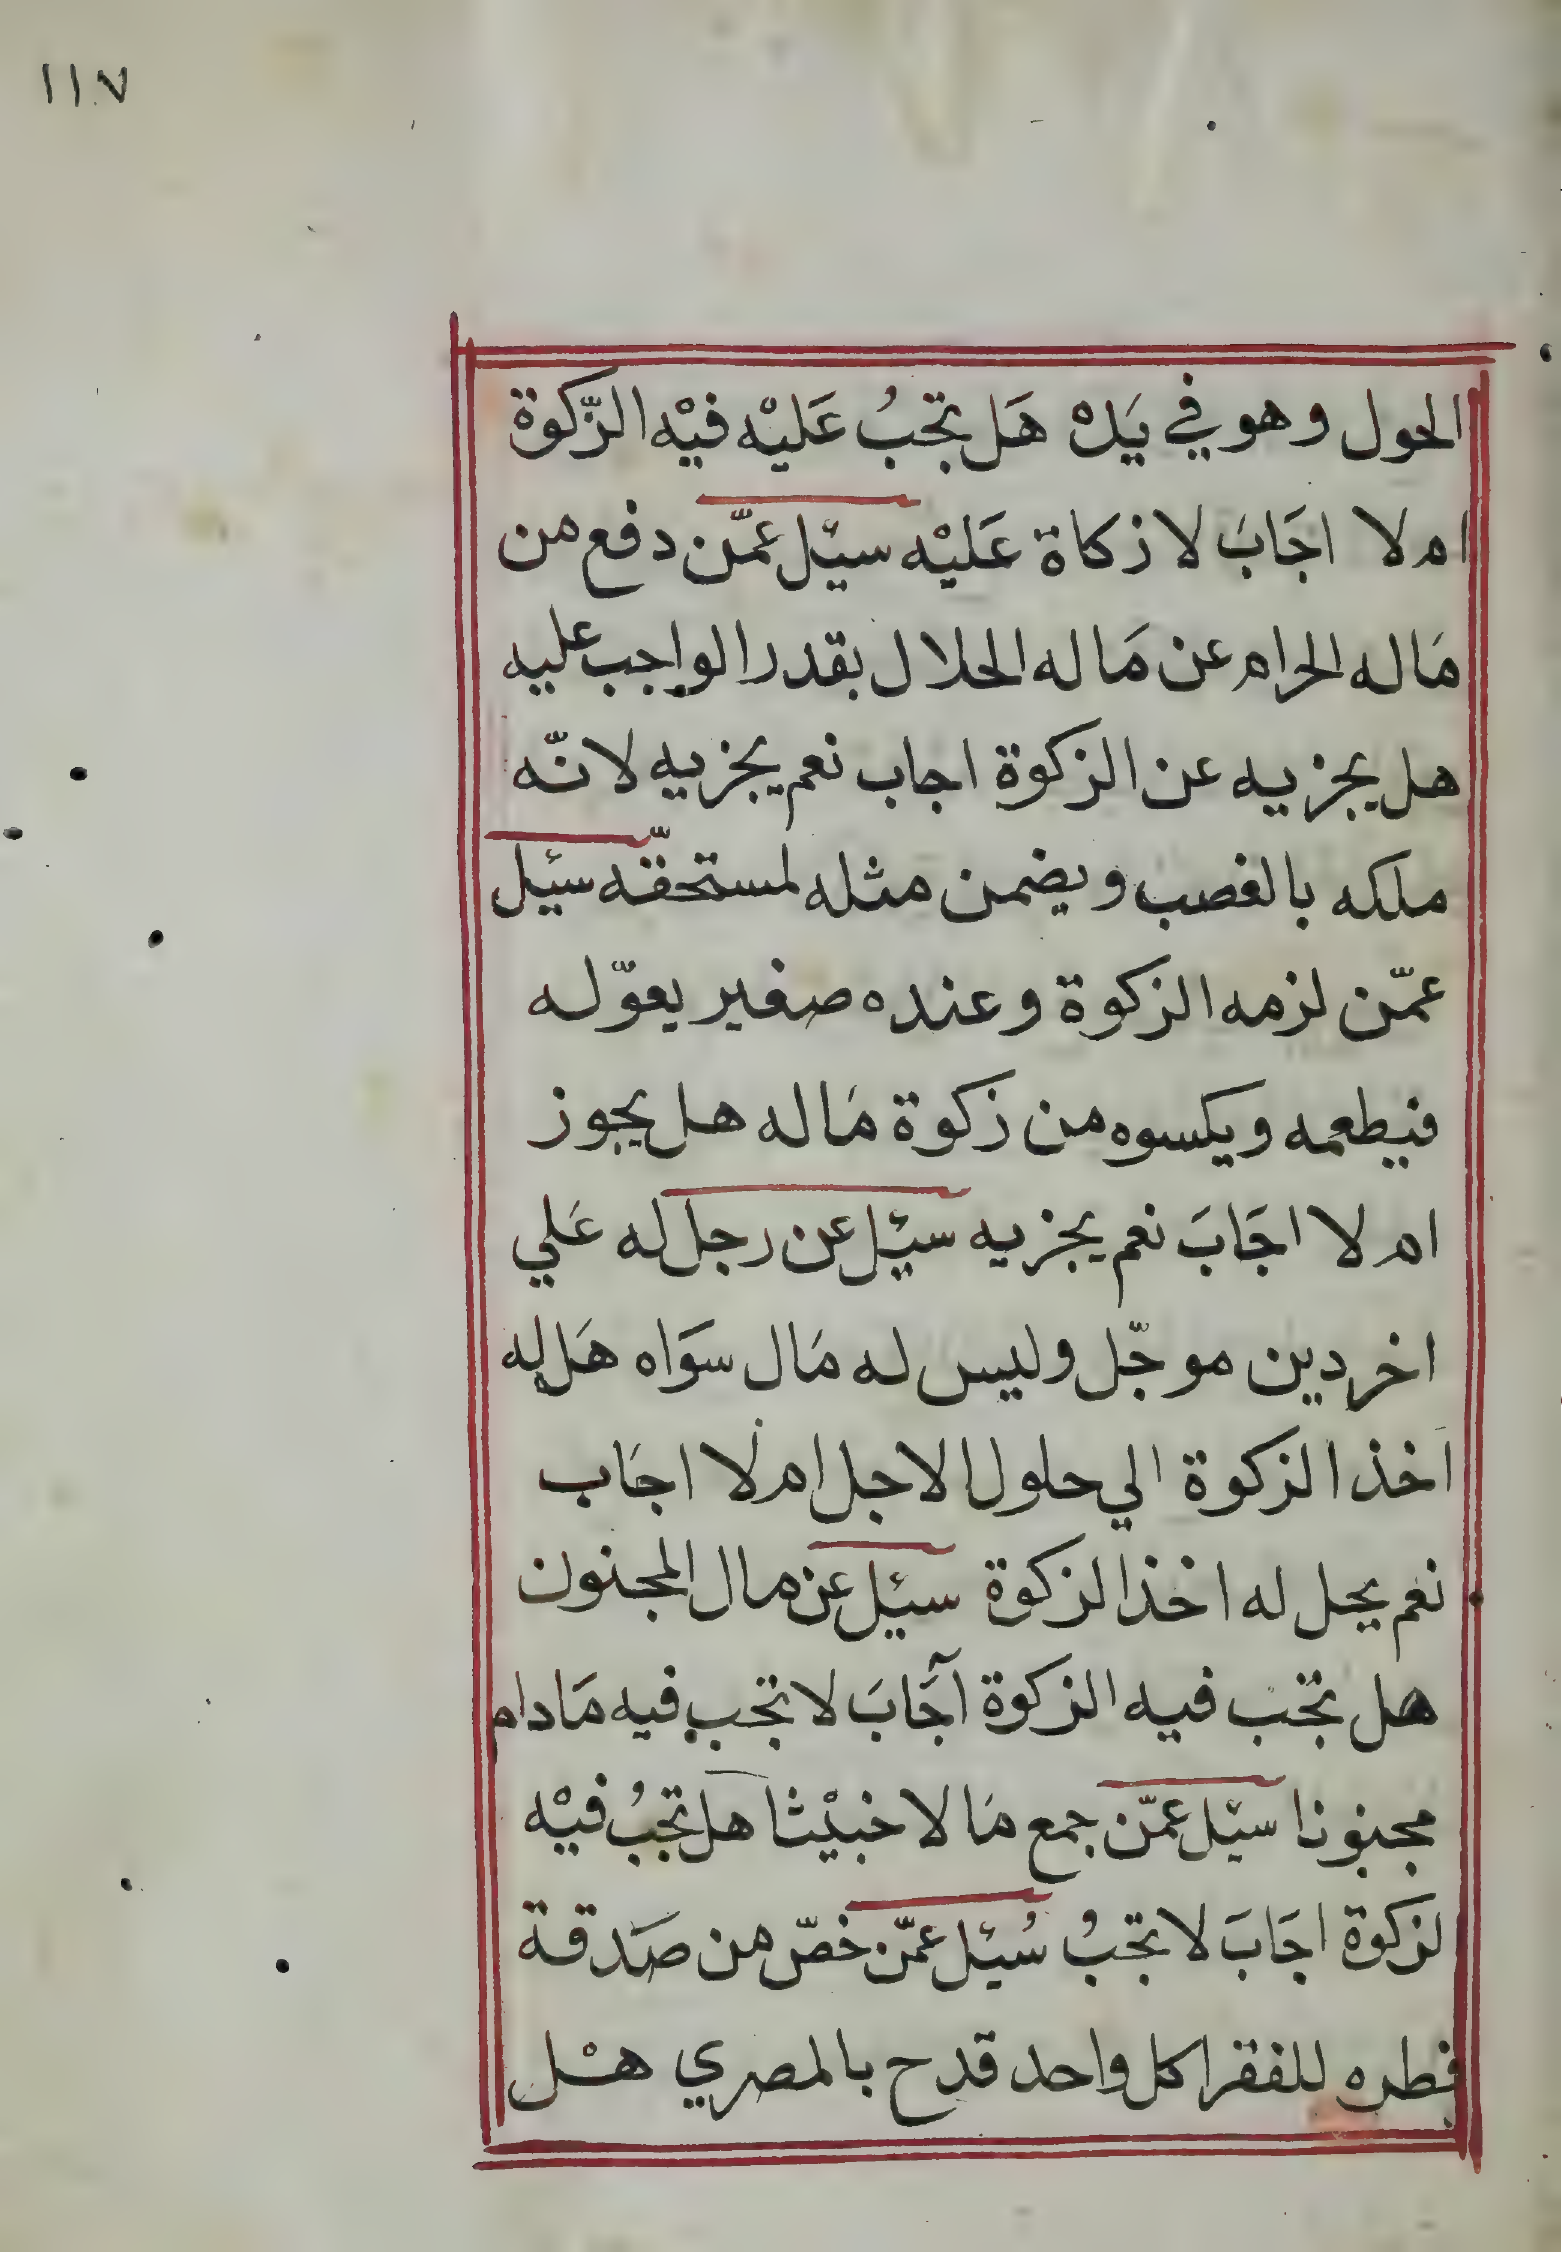 ١١٧
الحول وهو في يَدهْ هَل تجبُ عَليْه فيْه الزّكوة
ام لا اجَابَ لا زكاة عَليْه سئل عمّن دفع من
مَاله الحرام عن مَاله الحلال بقدر الواجب عليه
هل يجزيه عن الزكوة اجاب نعم يجزيه لانّه
ملكه بالغصب ويضمن مثله لمستحقّه سئل
عمّن لزمه الزكوة وعنده صغير يعوّله
فيطعمه ويكسوه من زكوة مَاله هل يجوز
ام لا اجَابَ نعم يجزيه سئل عن رجل له عَلي
اخر دين موجّل وليس له مَال سوَاه هَل له
اخذ الزكوة الي حلول الاجل ام لا اجَاب
نعم يحل له اخذ الزكوة سئل عن مال المجنون
هل تجب فيه الزكوة آجَابَ لا تجب فيه مَادام
مجنونا سئل عمّن جمع مَالا خبيْثا هل تجبُ فيْه
لزكوة اجَابَ لا تجبُ سُئل عمّن خصّ من صَدقة
فطره للفقرا كل واحد قدح بالمصري هْل